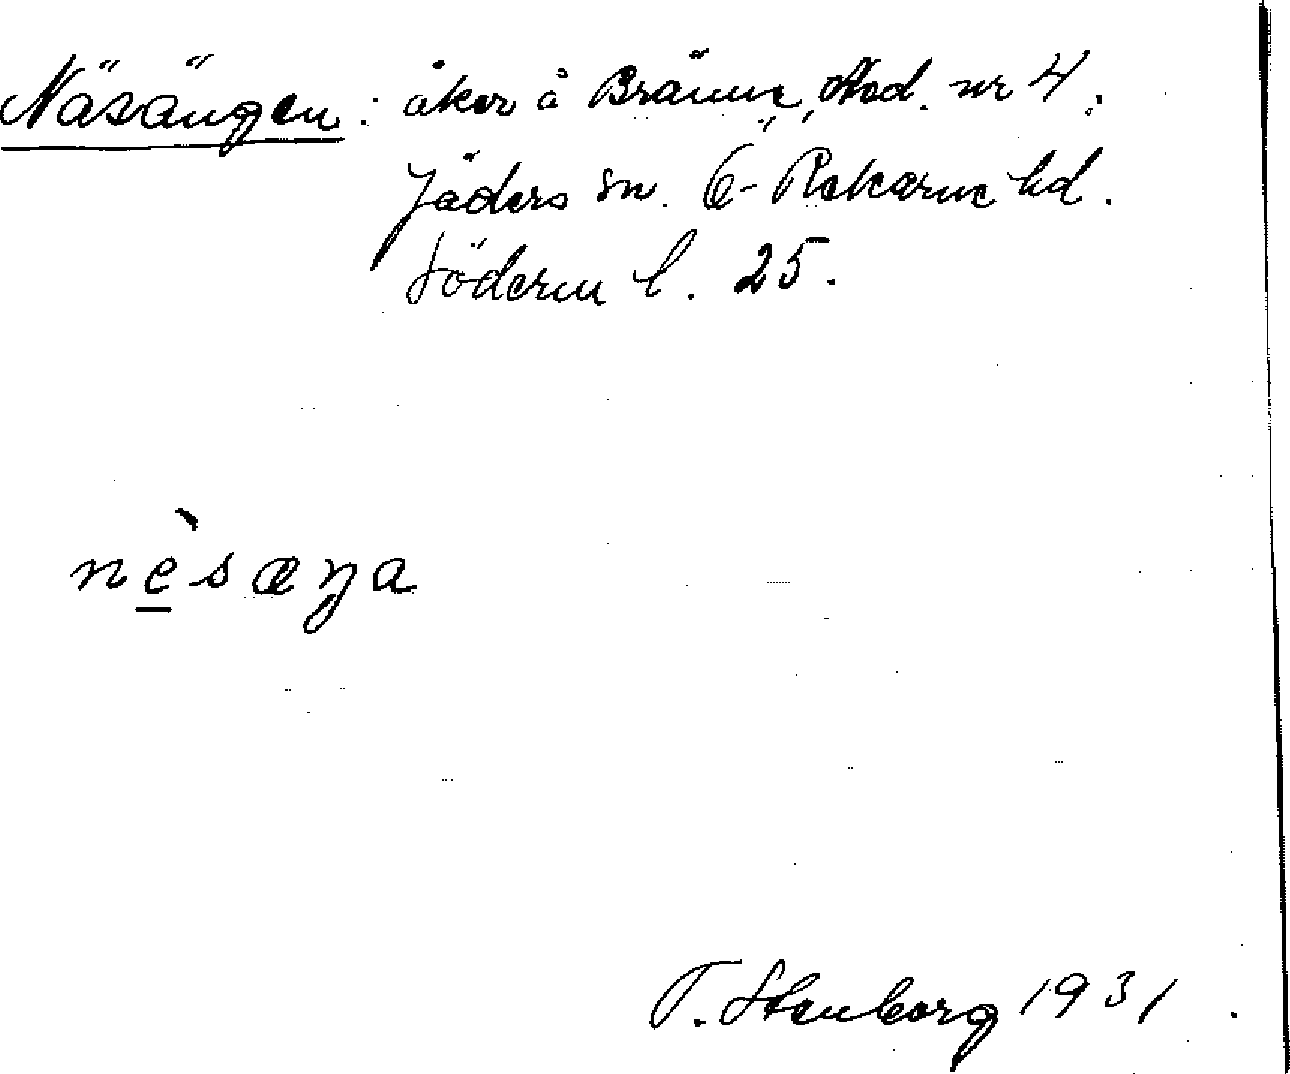 Näsängen: åker å Bränne, Stod. nr 4,
Jäders sn. Ö-Rekarne hd.
Söderm l. 25.
nèsæŋa
T. Stenborg 1931.